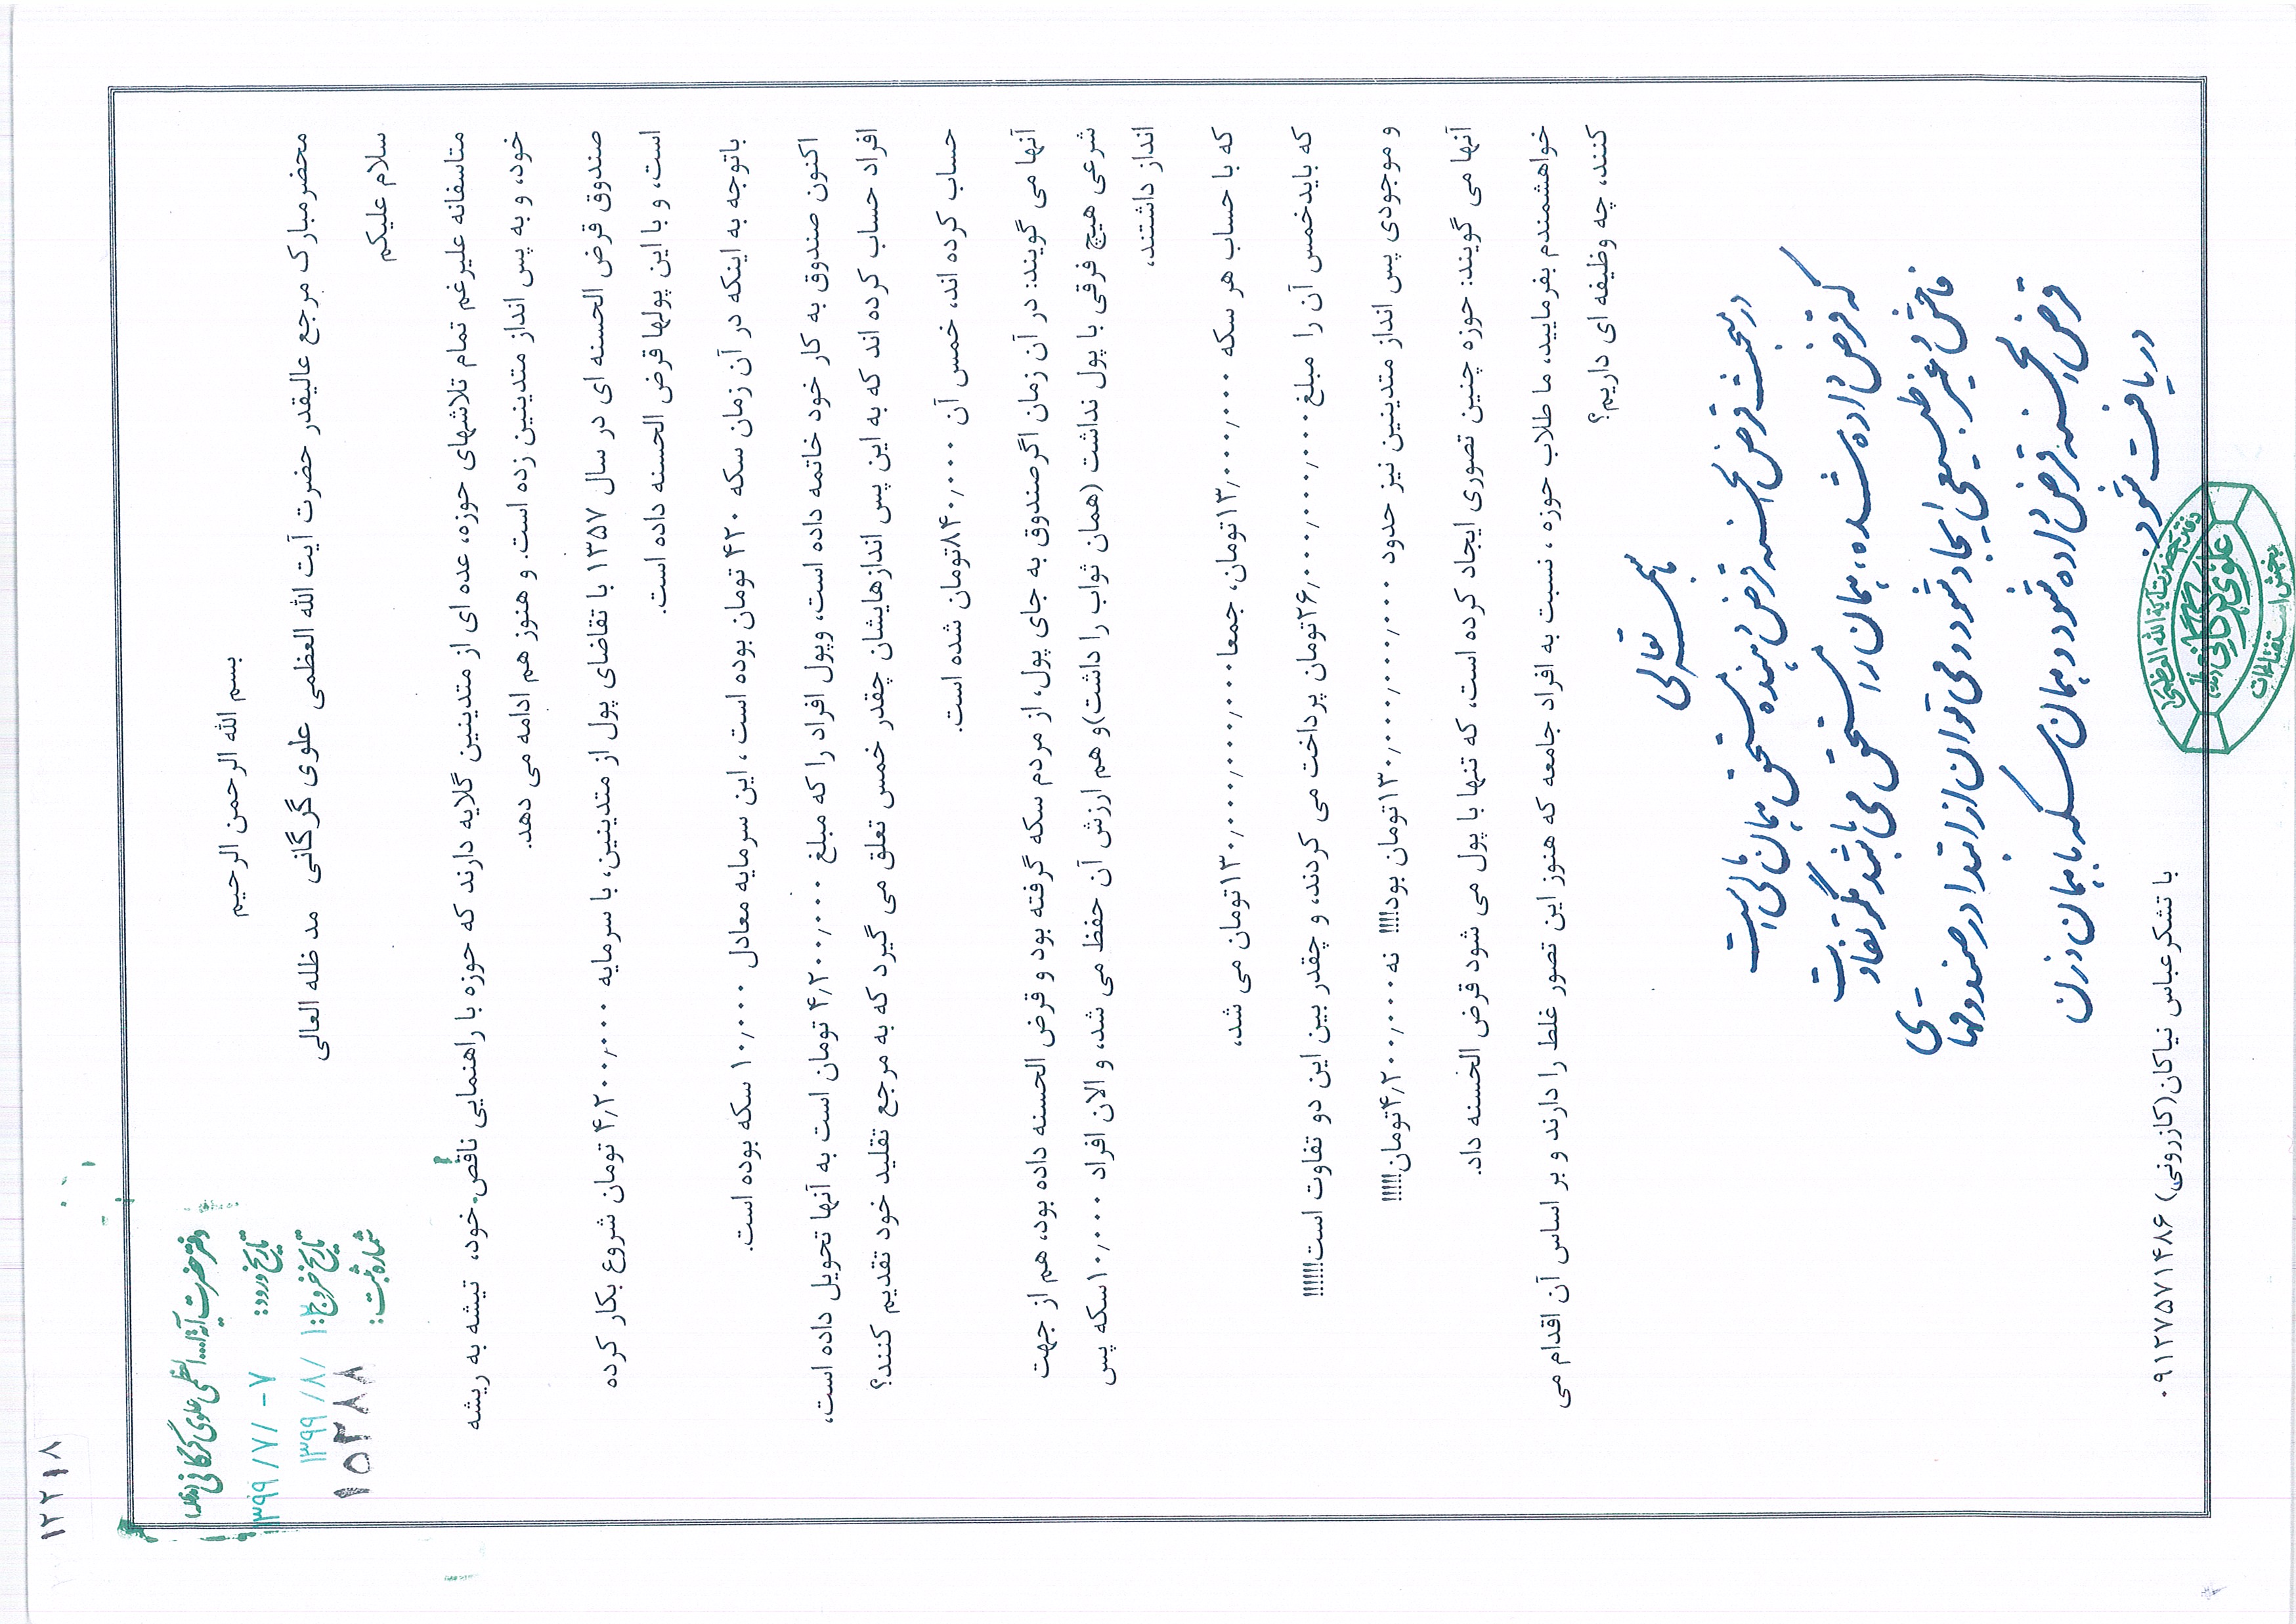 ۱۲۲۱۸
دفتر حضرت آیة الله العظمی علوی گرگانی (مدظله)
تاریخ ورود: ۷- /۱۳۹۹/۷
تاریخ خروج: /۱۳۹۹/۸
شماره ثبت: ۱۵۲۸۸
بسم الله الرحمن الرحیم
محضرمبارک مرجع عالیقدر حضرت آیت الله العظمی علوی گرگانی مد ظله العالی
سلام علیکم
متاسفانه علیرغم تمام تلاشهای حوزه، عده ای از متدینین گلایه دارند که حوزه با راهنمایی ناقص خود، تیشه به ریشه
خود، و به پس انداز متدینین زده است. و هنوز هم ادامه می دهد.
صندوق قرض الحسنه ای در سال ۱۳۵۷ با تقاضای پول از متدینین، با سرمایه ۴٫۲۰۰٫۰۰۰ تومان شروع بکار کرده
است، و با این پولها قرض الحسنه داده است.
باتوجه به اینکه در آن زمان سکه ۴۲۰ تومان بوده است ، این سرمایه معادل ۱۰٫۰۰۰ سکه بوده است.
اکنون صندوق به کار خود خاتمه داده است، وپول افراد را که مبلغ ۴٫۲۰۰٫۰۰۰ تومان است به آنها تحویل داده است،
افراد حساب کرده اند که به این پس اندازهایشان چقدر خمس تعلق می گیرد که به مرجع تقلید خود تقدیم کنند؟
حساب کرده اند، خمس آن ۸۴۰٫۰۰۰تومان شده است.
آنها می گویند: در آن زمان اگرصندوق به جای پول، از مردم سکه گرفته بود و قرض الحسنه داده بود، هم از جهت
شرعی هیچ فرقی با پول نداشت (همان ثواب را داشت)و هم ارزش آن حفظ می شد، و الان افراد ۱۰٫۰۰۰سکه پس
انداز داشتند،
که با حساب هر سکه ۱۳٫۰۰۰٫۰۰۰تومان، جمعا۱۳۰٫۰۰۰٫۰۰۰٫۰۰۰تومان می شد،
که بایدخمس آن را مبلغ ۲۶٫۰۰۰٫۰۰۰٫۰۰۰تومان پرداخت می کردند، و چقدر بین این دو تفاوت است!!!!!!
و موجودی پس انداز متدینین نیز حدود ۱۳۰٫۰۰۰٫۰۰۰٫۰۰۰تومان بود!!!! نه ۴٫۲۰۰٫۰۰۰تومان!!!!!
آنها می گویند: حوزه چنین تصوری ایجاد کرده است، که تنها با پول می شود قرض الحسنه داد.
خواهشمندم بفرمایید، ما طلاب حوزه ، نسبت به افراد جامعه که هنوز این تصور غلط را دارند و بر اساس آن اقدام می
کنند، چه وظیفه ای داریم؟
باسمه تعالی
در بحث قرض الحسنه قرض دهنده مستحق همان مالی است
که قرض داده شده، همان را مستحق می باشد مگر تفاوت
فاحش و غیر طبیعی ایجاد شود و می توان از ابتدا در صندوقهای
قرض الحسنه قرض داده شود و همان سکه با همان وزن
دریافت شود
دفتر حضرت آیة الله العظمی
علوی گرگانی
بخش استفتائات
با تشکرعباس نیاکان(کازرونی) ۰۹۱۲۷۵۷۱۴۸۶